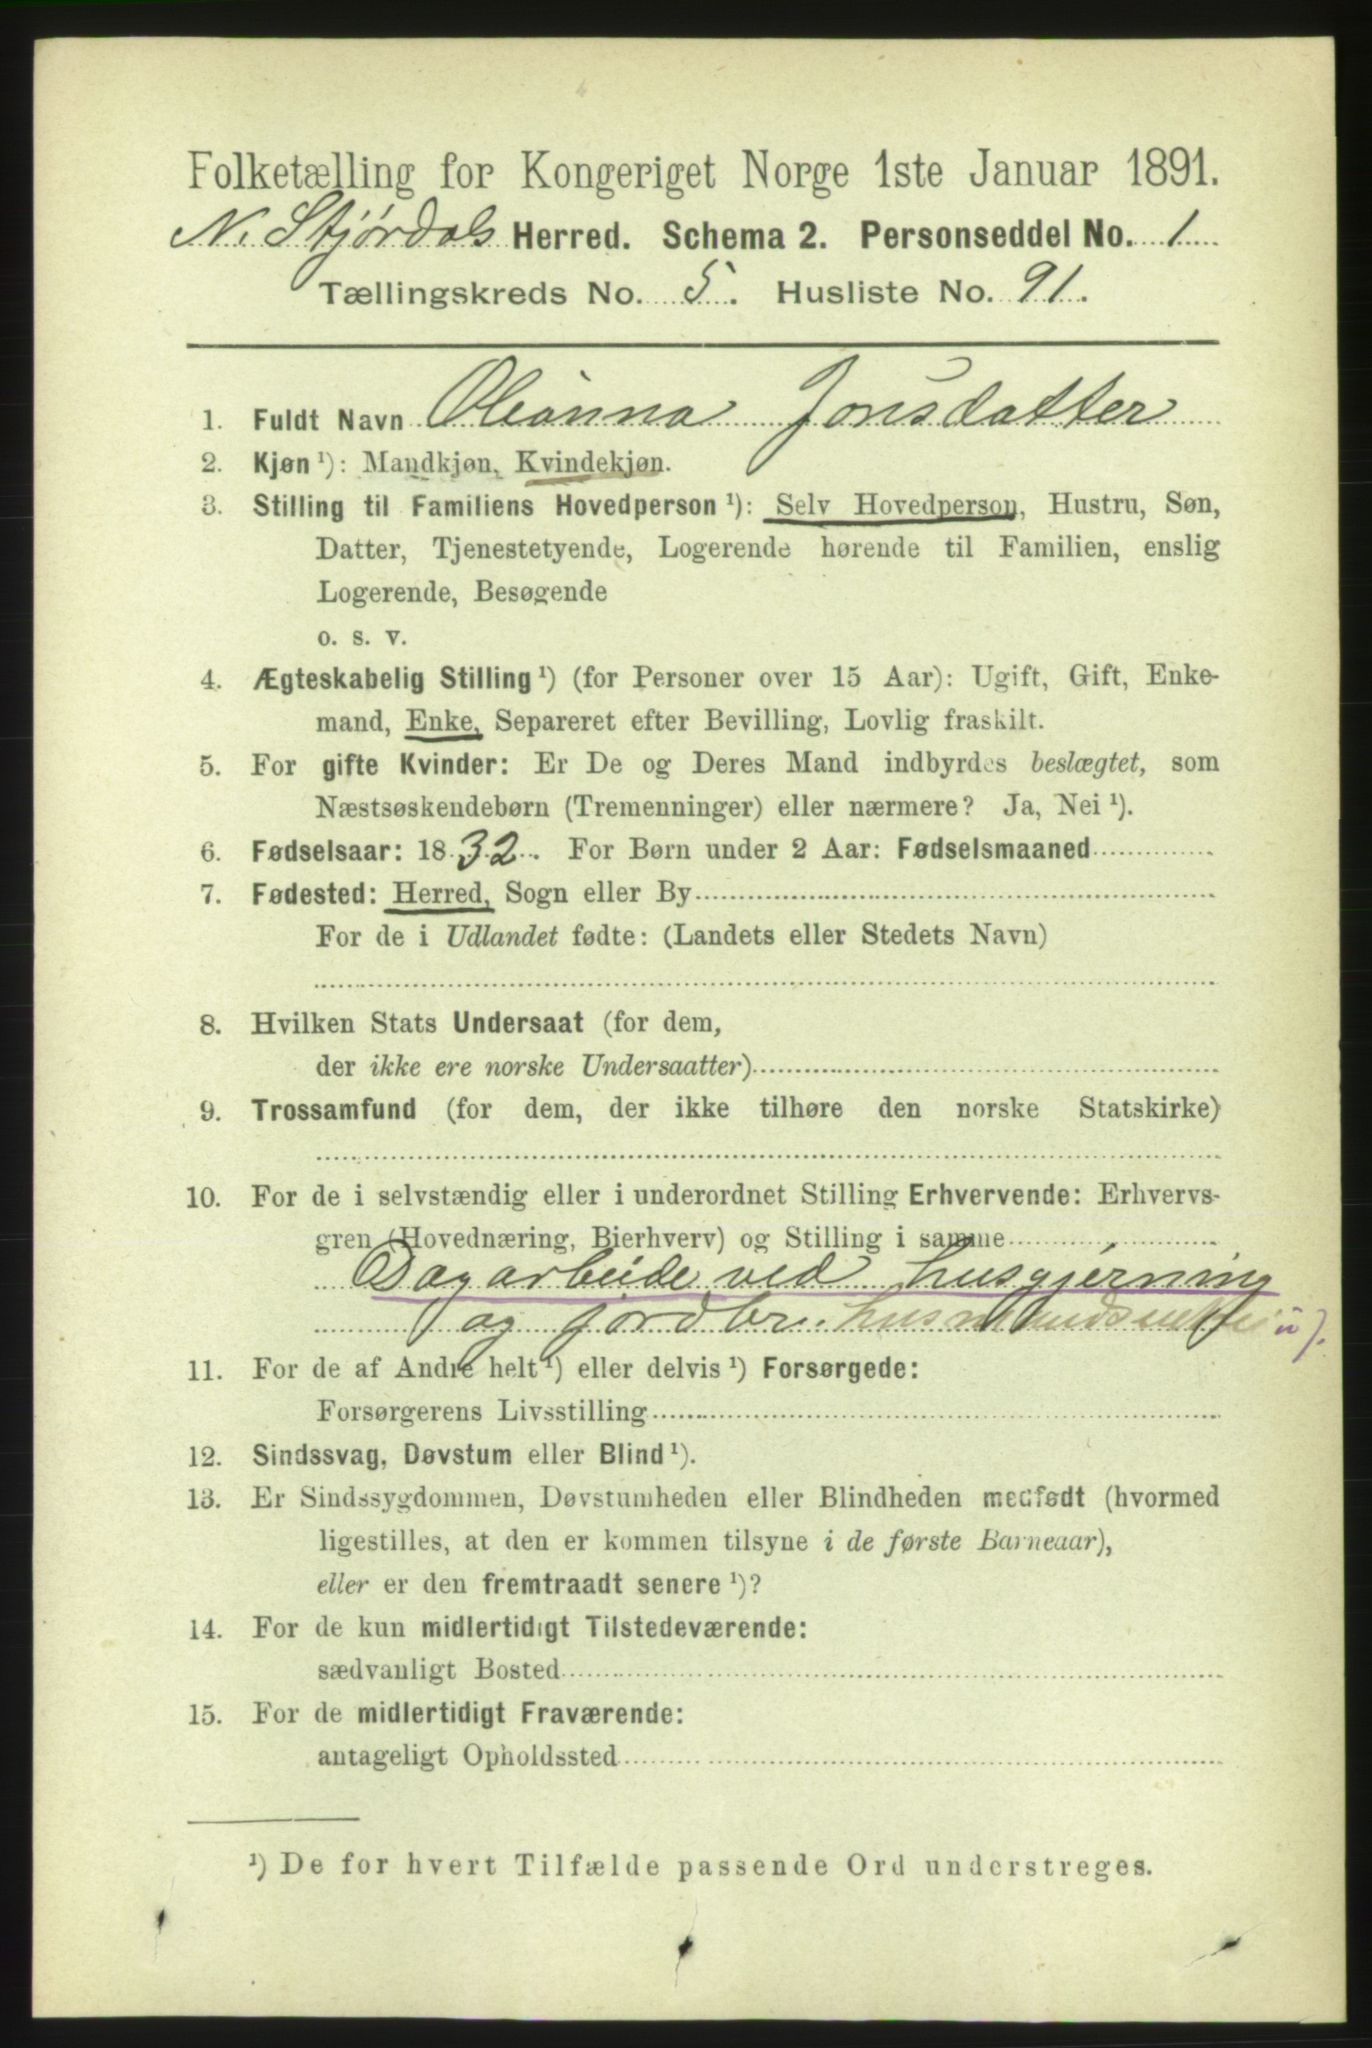 Folketælling for Kongeriget Norge 1ste Januar 1891.
N. Stjørdals Herred. Schema 2. Personseddel No. 1
Tællingskreds No. 5. Husliste No. 91.
1. Fuldt Navn Oleanna Jonsdatter
2. Kjøn ¹): Mandkjøn, Kvindekjøn.
3. Stilling til Familiens Hovedperson ¹): Selv Hovedperson, Hustru, Søn,
Datter, Tjenestetyende, Logerende hørende til Familien, enslig
Logerende, Besøgende
o. s. v.
4. Ægteskabelig Stilling ¹) (for Personer over 15 Aar): Ugift, Gift, Enke-
mand, Enke, Separeret efter Bevilling, Lovlig fraskilt.
5. For gifte Kvinder: Er De og Deres Mand indbyrdes beslægtet, som
Næstsøskendebørn (Tremenninger) eller nærmere? Ja, Nei ¹).
6. Fødselsaar: 1832. For Børn under 2 Aar: Fødselsmaaned
7. Fødested: Herred, Sogn eller By
For de i Udlandet fødte: (Landets eller Stedets Navn)
8. Hvilken Stats Undersaat (for dem,
der ikke ere norske Undersaatter)
9. Trossamfund (for dem, der ikke tilhøre den norske Statskirke)
10. For de i selvstændig eller i underordnet Stilling Erhvervende: Erhvervs-
gren (Hovednæring, Bierhverv) og Stilling i samme
Dagarbeide ved husgjerning
og jordbr.
11. For de af Andre helt ¹) eller delvis ¹) Forsørgede:
Forsørgerens Livsstilling
12. Sindssvag, Døvstum eller Blind ¹).
13. Er Sindssygdommen, Døvstumheden eller Blindheden medfødt (hvormed
ligestilles, at den er kommen tilsyne i de første Barneaar),
eller er den fremtraadt senere ¹)?
14. For de kun midlertidigt Tilstedeværende:
sædvanligt Bosted
15. For de midlertidigt Fraværende:
antageligt Opholdssted
¹) De for hvert Tilfælde passende Ord understreges.